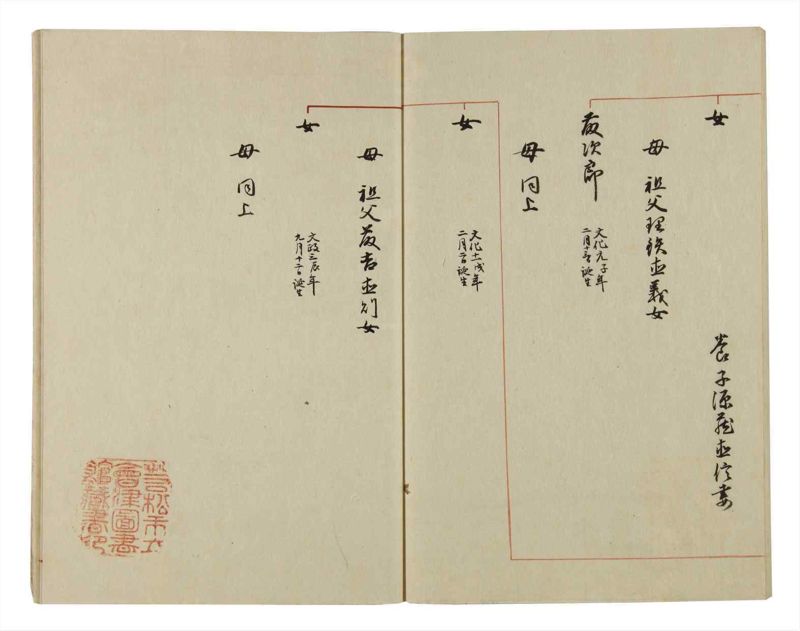 女
養子源蔵直信妻
母 祖父理鉄直義女
次郎
文化元子年
二月十三日誕生
母 同上
女
文化十一戌年
二月二日誕生
母 祖父 吉直則女
女
文政三辰年
九月十二日誕生
母 同上
若松市立
會津圖書
館藏書印